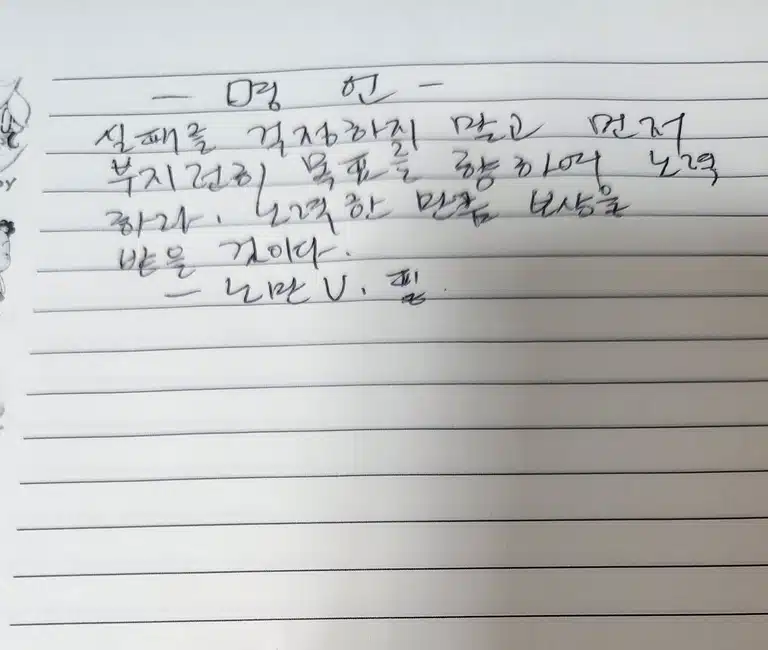 - 명 언 -
실패를 걱정하지 말고 먼저
부지런히 목표를 향하여 노력
하라. 노력한 만큼 보상을
받을 것이다.
- 노만 V. 필.